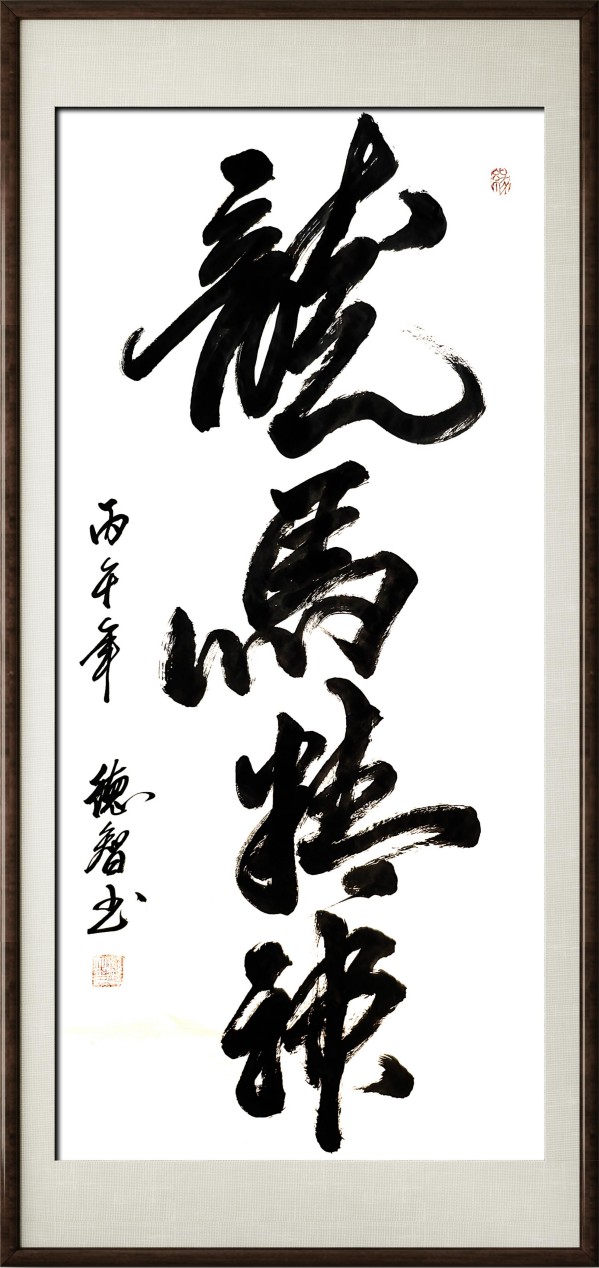 龍馬精神
丙午年
德智书